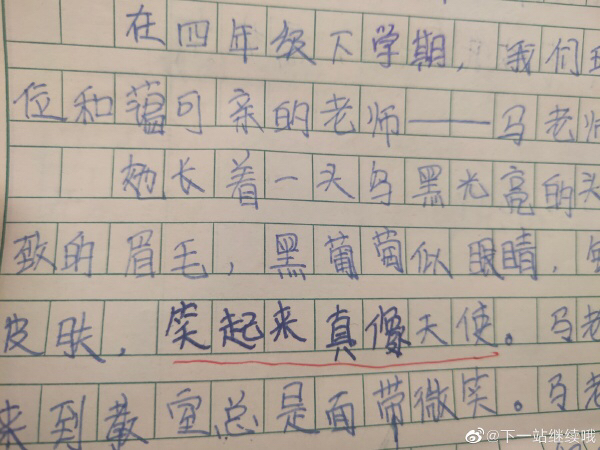 在四年级下学期，我们
位和蔼可亲的老师——马老师
她长着一头乌黑光亮的头
致的眉毛，黑葡萄似眼睛，
皮肤，笑起来真像天使。马老
来到教室总是面带微笑。马老
@下一站继续哦